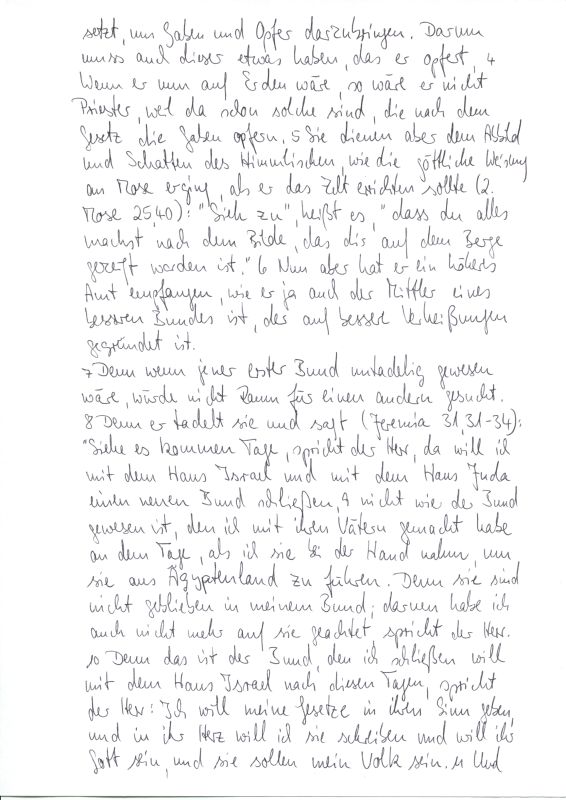 setzt, um Gaben und Opfer darzubringen. Darum
muss auch dieser etwas haben, das er opfert. 4
Wenn er nun auf Erden wäre, so wäre er nicht
Priester, weil da schon solche sind, die nach dem
Gesetz die Gaben opfern. 5 Sie dienen aber dem Abbild
und Schatten des Himmlischen, wie die göttliche Weisung
an Mose erging, als er das Zelt errichten sollte (2.
Mose 25,40): "Sieh zu", heißt es, "dass du alles
machst nach dem Bilde, das dir auf dem Berge
gezeigt worden ist." 6 Nun aber hat er ein höheres
Amt empfangen, wie er ja auch der Mittler eines
besseren Bundes ist, der auf bessere Verheißungen
gegründet ist.
7 Denn wenn jener erster Bund untadelig gewesen
wäre, würde nicht Raum für einen andern gesucht.
8 Denn er tadelt sie und sagt (Jeremia 31,31-34):
"Siehe es kommen Tage, spricht der Herr, da will ich
mit dem Haus Israel und mit dem Haus Juda
einen neuen Bund schließen, 9 nicht wie der Bund
gewesen ist, den ich mit ihren Vätern gemacht habe
an dem Tage, als ich sie bei der Hand nahm, um
sie aus Ägyptenland zu führen. Denn sie sind
nicht geblieben in meinem Bund; darum habe ich
auch nicht mehr auf sie geachtet spricht der Herr.
10 Denn das ist der Bund, den ich schließen will
mit dem Haus Israel nach diesen Tagen, spricht
der Herr: Ich will meine Gesetze in ihren Sinn geben,
und in ihr Herz will ich sie schreiben und will ihr
Gott sein, und sie sollen mein Volk sein. 11 Und